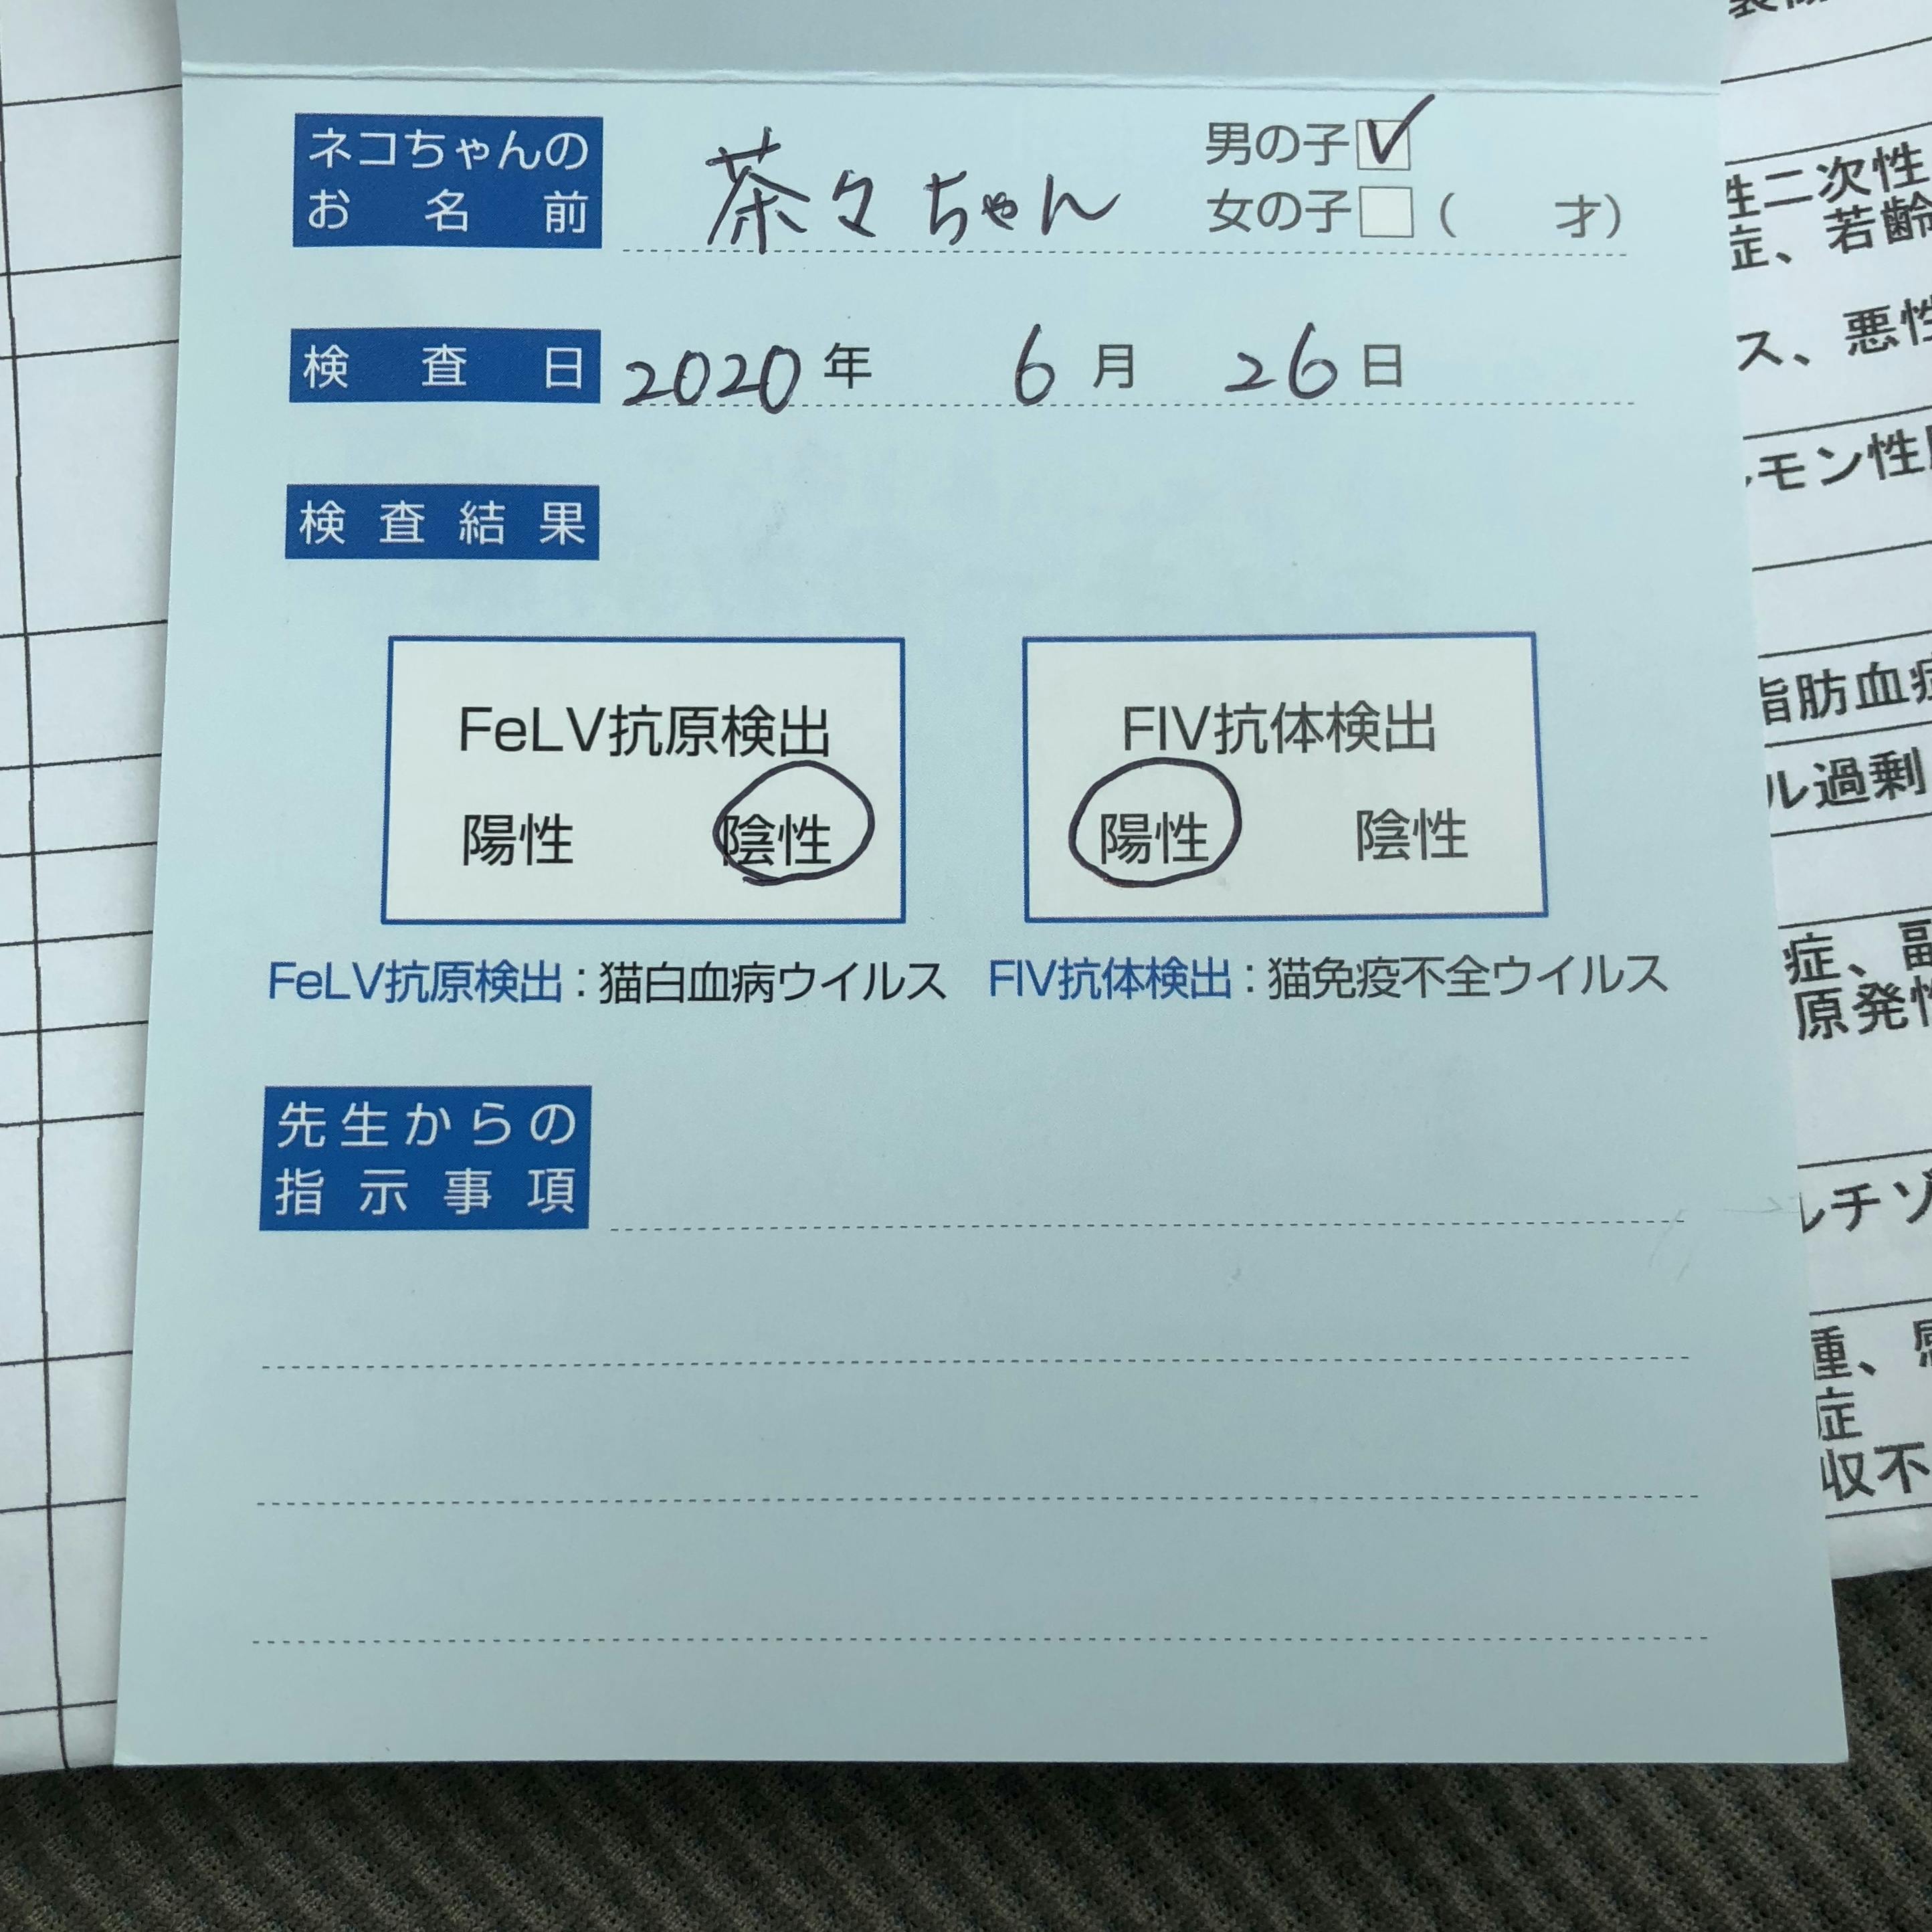 ネコちゃんの
お名前
茶々ちゃん
男の子
女の子 ( 才)
検査日 2020年 6月 26日
検査結果
FeLV抗原検出
陽性 陰性
FIV抗体検出
陽性 陰性
FeLV抗原検出：猫白血病ウイルス
FIV抗体検出：猫免疫不全ウイルス
先生からの
指示事項
性二次性
症、若齢
ス、悪性
モン性
脂肪血症
ル過剰
症、副
原発性
ルチゾ
腫、
症
収不